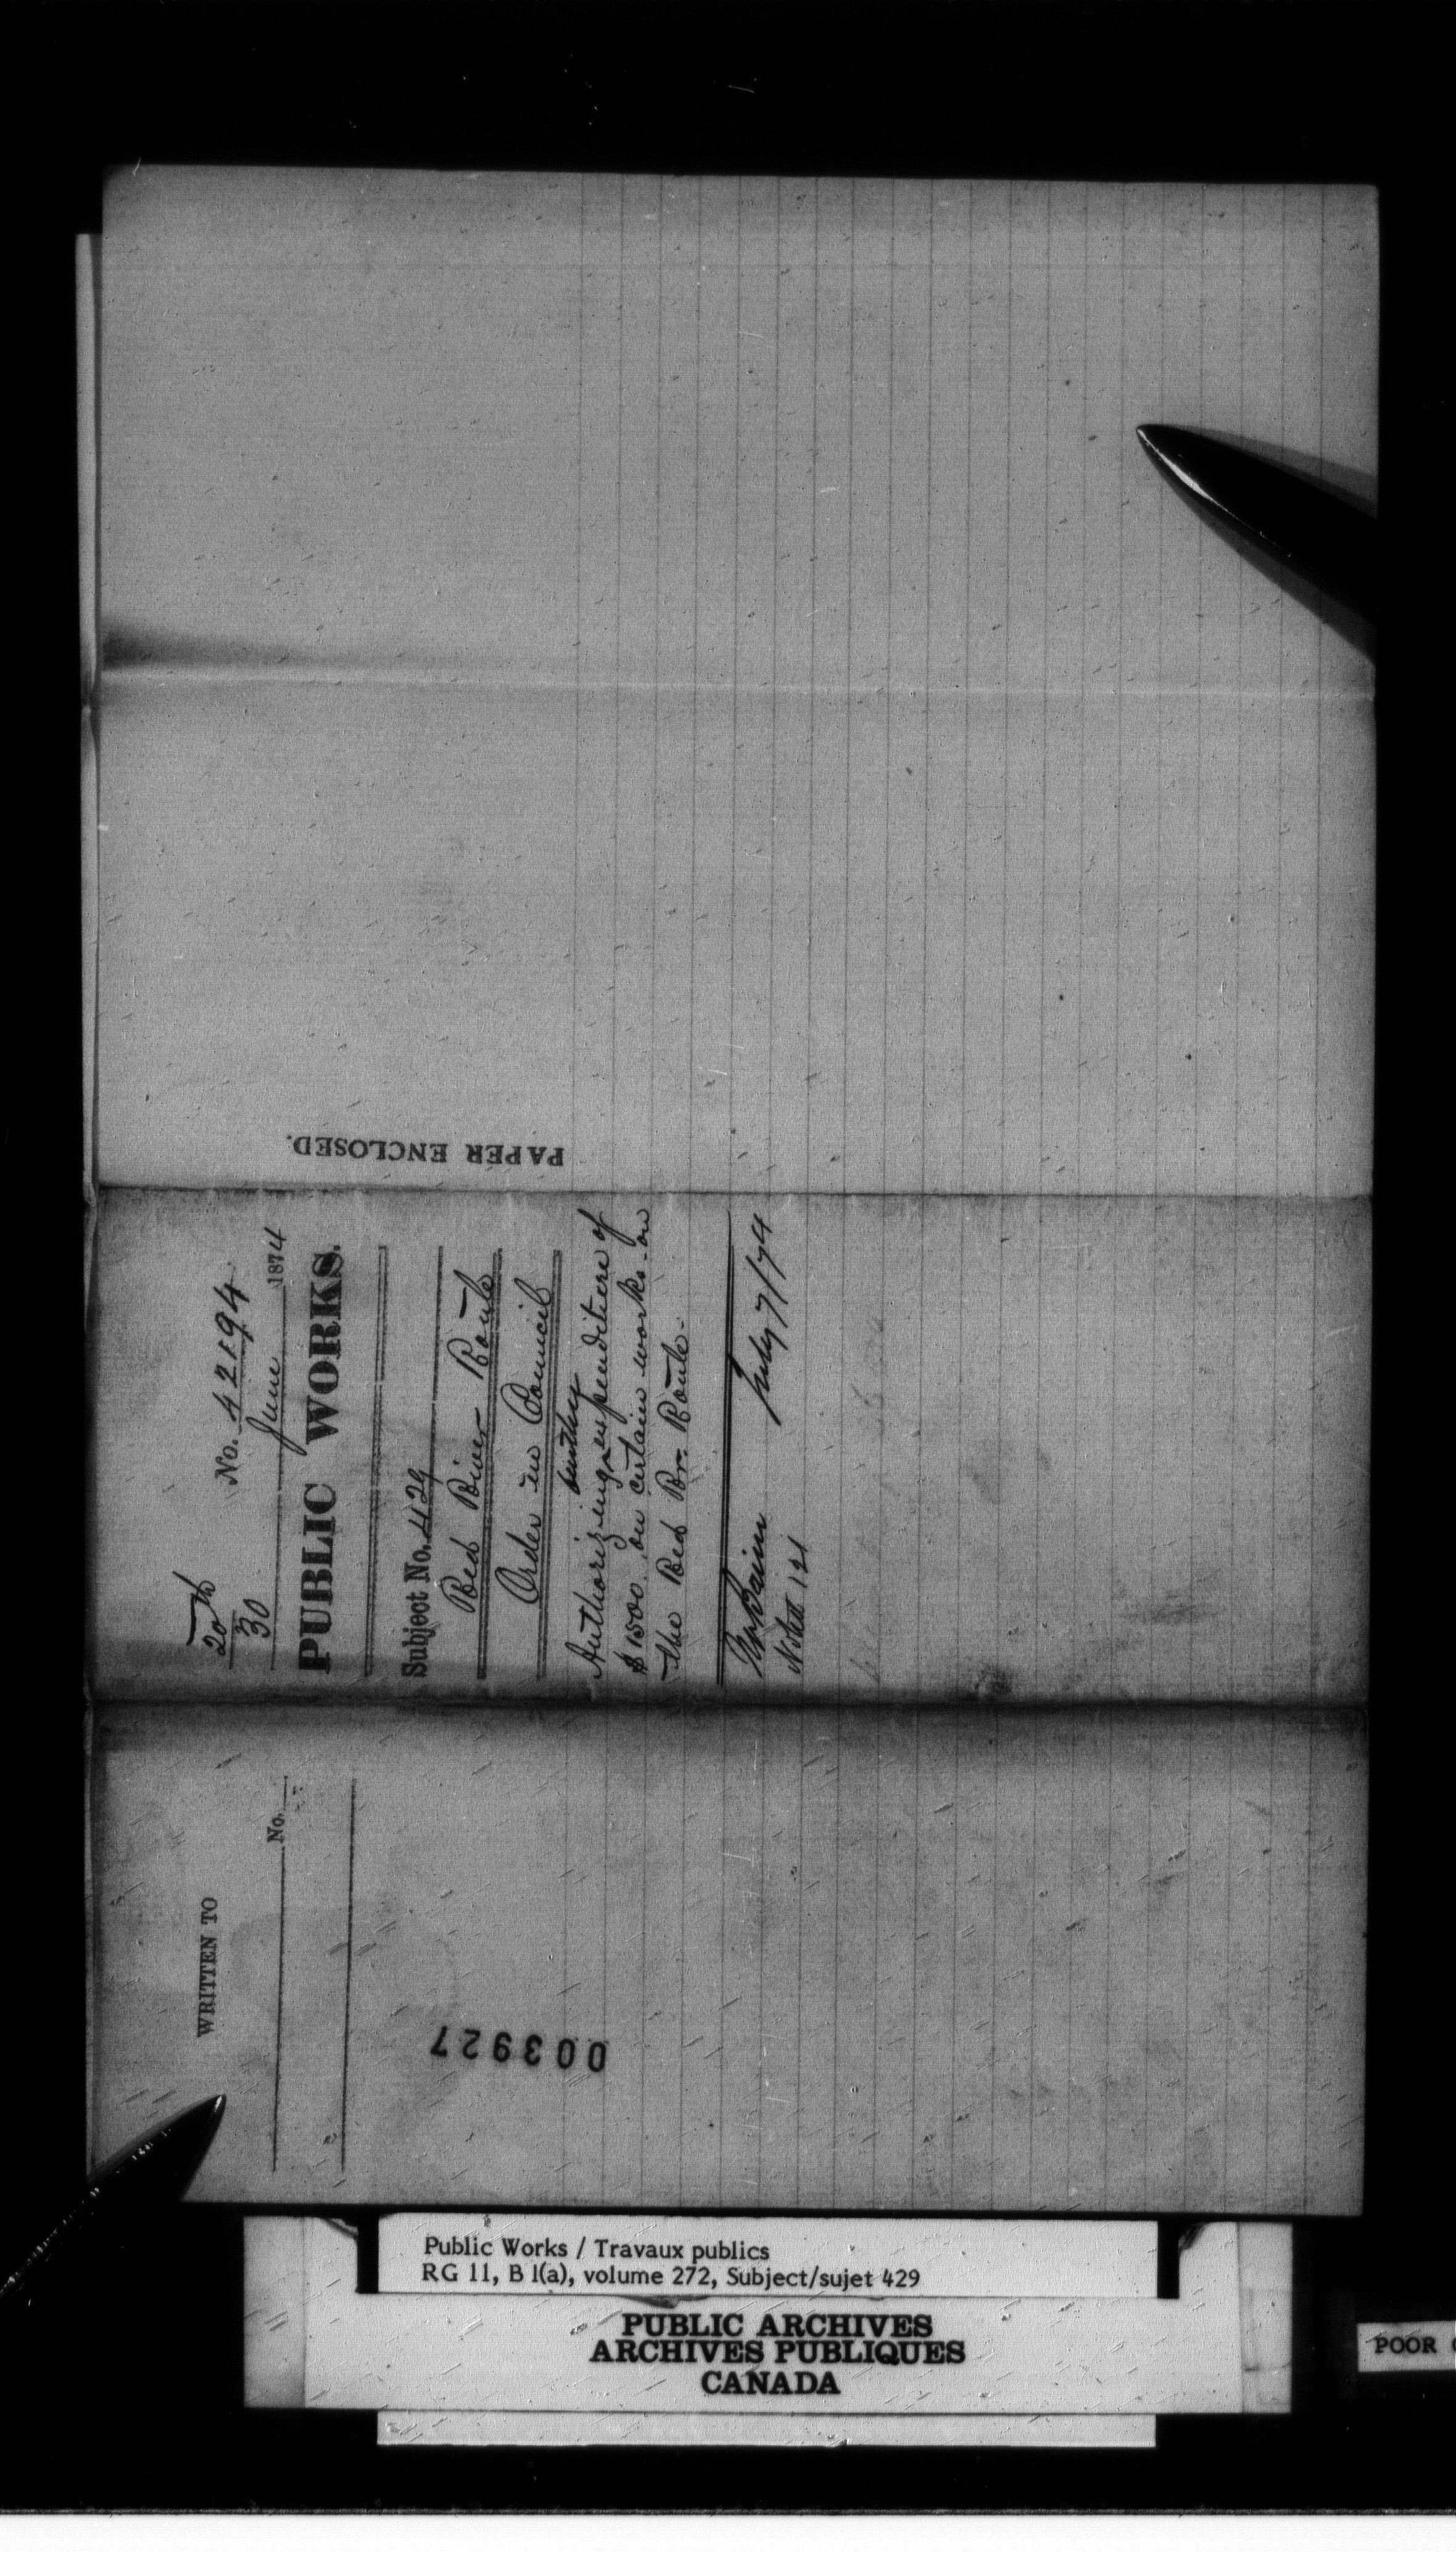 PAPER ENCLOSED.
20th
30
No. 42194
June 1874
PUBLIC WORKS.
Subject No. 429
Red River Route
Order in Council
further
Authorizing expenditure of
$1500. on certain works on
the Red Rr. Route.
July 7/74
WRITTEN TO
No.
003927
Public Works / Travaux publics
RG 11, B 1(a), volume 272, Subject/sujet 429
PUBLIC ARCHIVES
ARCHIVES PUBLIQUES
CANADA
POOR